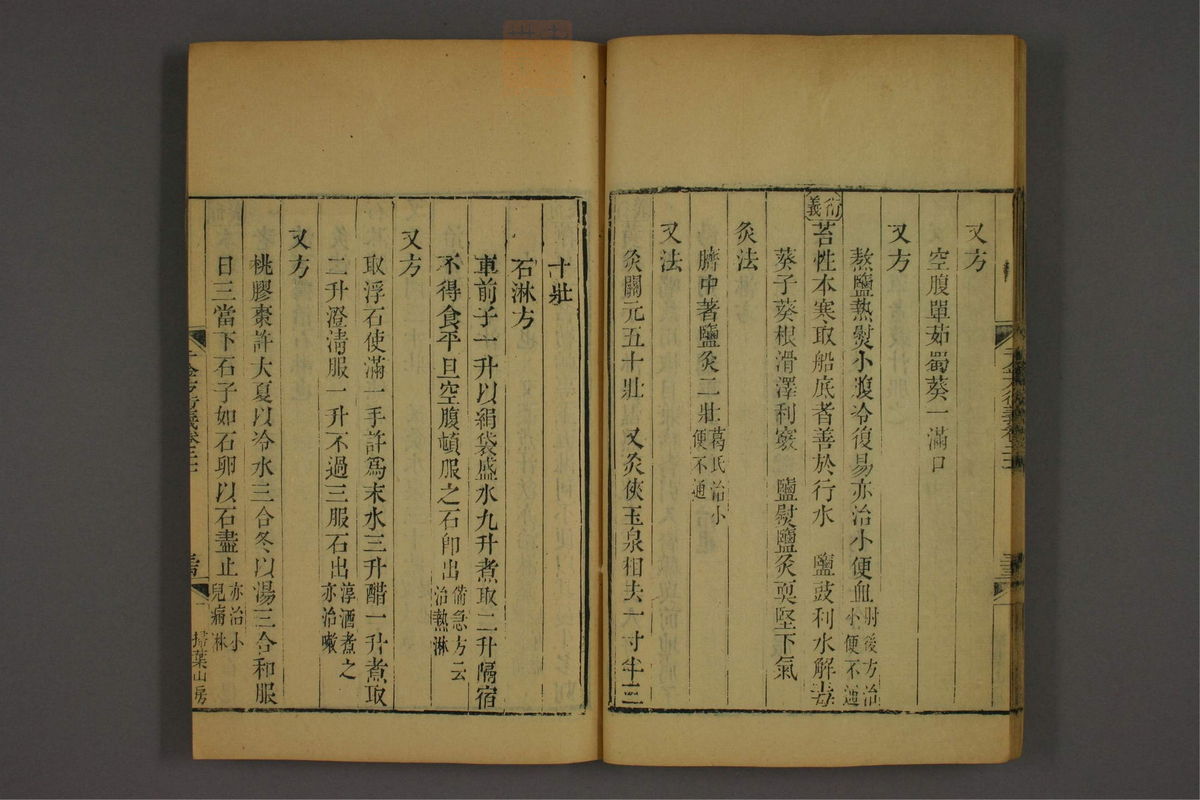 又方
空腹單茹蜀葵一滿口
又方
熬鹽熱熨小腹冷復易亦治小便血肘後方治小便不通
衍義
苔性本寒取船底者善於行水　鹽豉利水解毒
葵子葵根滑澤利竅　鹽熨鹽灸耎堅下氣
灸法
臍中著鹽灸二壯葛氏治小便不通
又法
灸關元五十壯　又灸俠玉泉相去一寸半三
十壯
石淋方
車前子一升以絹袋盛水九升煮取二升隔宿
不得食平旦空腹頓服之石卽出備急方云治熱淋
又方
取浮石使滿一手許爲末水三升醋一升煮取
二升澄淸服一升不過三服石出淳酒煮之亦治嗽
又方
桃膠棗許大夏以冷水三合冬以湯三合和服
日三當下石子如石卵以石盡止亦治小兒痢淋
掃葉山房